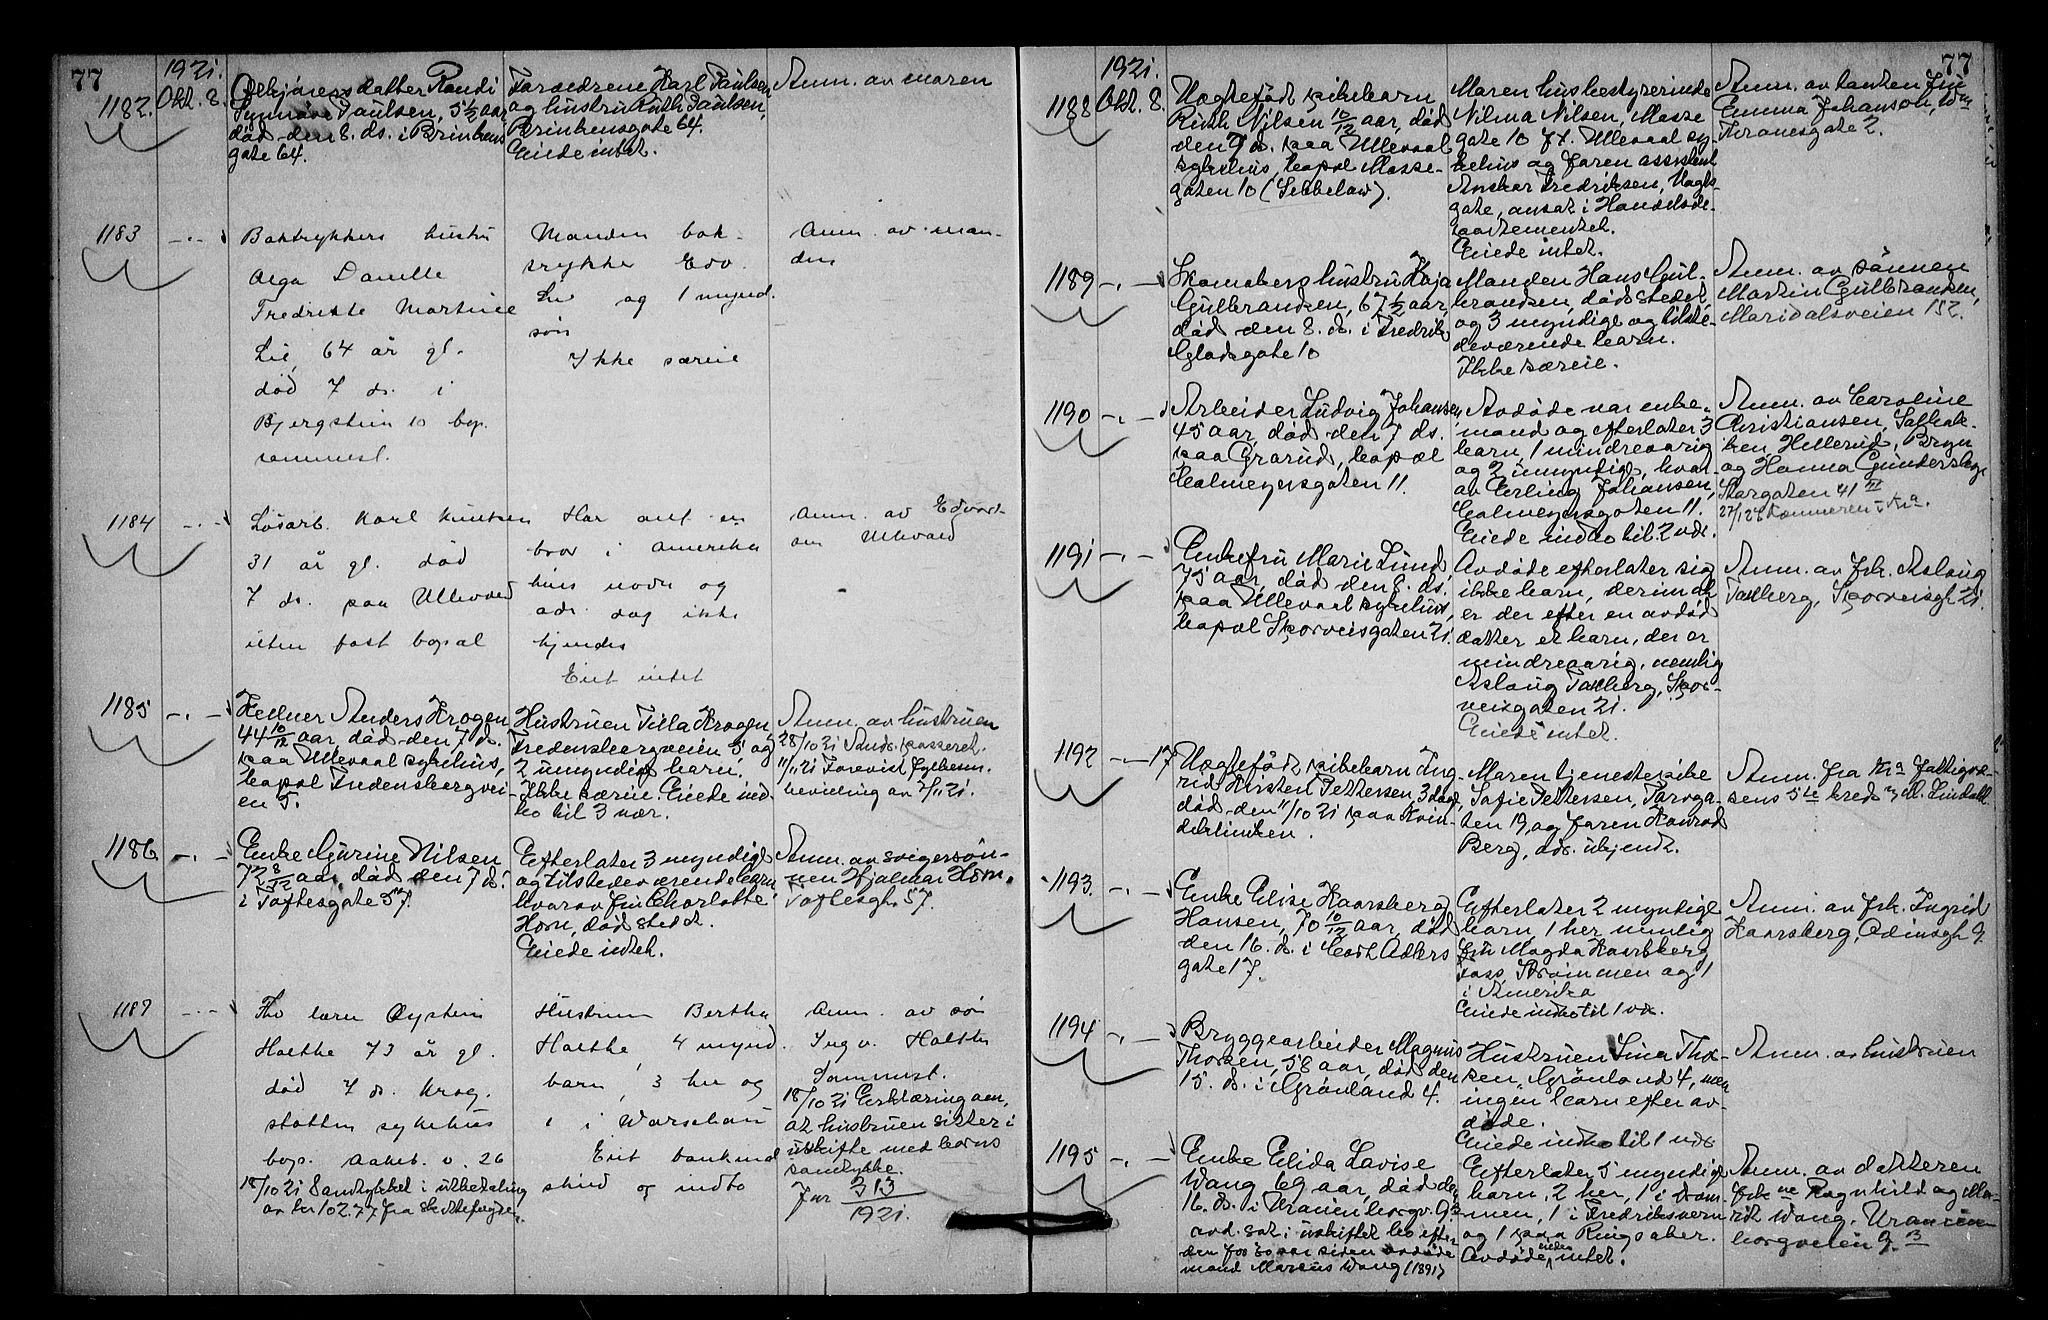 77
1921.
1182.
Okt. 8.
datter Randi
Paulsen, 5½ aar
død den 8. ds. i Brinkens
gate 64.
Forældrene Karl Paulsen
og hustru Ruth Paulsen,
Brinkensgate 64.
Eiede intet.
Anm. av moren
1183
Boktrykkers hustru
Olga
Fredrikke Martine
Lie, 64 år gl.
død 7 ds. i
Bjergstien 10 bop.
sammest.
Manden bok-
trykker Edv.
Lie og 1 mynd.
søn
Ikke særeie
Anm. av man-
den
1184
Løsarb. Karl Knutsen
31 år gl. død
7 ds. paa Ullevaal
uten fast bopæl
Har ant. en
bror i Amerika
hvis navn og
adr. dog ikke
kjendes
Eiet intet
Anm. av
Ullevaal
1185
Kelner Anders Krogen
44 10/12 aar, død den 7 ds.
paa Ullevaal sykehus,
bopæl Fredensborgvei-
en 5.
Hustruen Tilla Krogen,
Fredensborgveien 5 og
2 umyndige barn.
Ikke særeie. Eiede ind-
bo til 3 vær.
Anm. av hustruen
28/10 21 passeret.
11/11 21 Forevist fylkesm.
bevilling av 7/11 21.
1186
Enke Gurine Nilsen
72 8/12 aar, død den 7 ds.
i Toftesgate 57.
Efterlater 3 myndige
og tilstedeværende barn
hvorav fru Charlotte
Horn, dødstedet.
Eiede intet.
Anm. av svigersøn-
nen Hjalmar Horn,
Toftesgt. 57.
1187
Øystein
Holthe 73 år gl.
død 7 ds. Krog-
støtten sykehus
bop. Akeb. v. 26
18/10 21 Samtykket i utbetaling
av kr 102.77 fra
Hustruen Bertha
Holthe, 4 mynd.
barn, 3 her og
1 i Warschau
Eiet
og indbo
Anm. av søn
Ingv. Holthe
Sammest.
18/10 21 Erklæring om,
at hustruen sitter i
uskifte med barns
samtykke.
Jnr 313
1921.
77
1921.
1188
Okt. 8.
Uegtefødt pikebarn
Ruth Nilsen 10/12 aar, død
den 7 ds. paa Ullevaal
sykehus, bopæl Mosse-
gaten 10
Moren husbestyrerinde
Vilma Nilsen, Mosse
gate 10 f.t. Ullevaal sy-
kehus og faren assistent
Anskar Fredriksen, Vogts-
gate, ansat i Handelsde-
partementet.
Eiede intet.
Anm. av tanten Fru
Emma Johanson,
Kranesgate 2.
1189
hustru Kaja
Gulbrandsen, 67½ aar,
død den 8. ds. i Fredrik
Gladsgate 10
Manden Hans Gul-
brandsen, dødstedet
og 3 myndige og tilste-
deværende barn.
Ikke særeie.
Anm. av sønnen
Martin Gulbrandsen,
Maridalsveien 152.
1190
Arbeider Ludvig Johansen
45 aar, død den 7 ds.
paa Grorud, bopæl
Calmeyersgaten 11.
Avdøde var enke-
mand og efterlater 3
barn, 1 mindreaarig
og 2 umyndige, hvor-
av Erling Johansen,
Calmeyersgaten 11.
Eiede indbo til 2 vdr.
Anm. av Caroline
Christiansen,
Hellerud, Bryn
og Hanna Gundersby
Storgaten 41 III
1191
Enkefru Marie Lund
75 aar, død den 8. ds.
paa Ullevaal sykehus,
bopæl Sporveisgaten 21.
Avdøde efterlater sig
ikke barn, derimot
er der efter en avdød
datter et barn, der er
mindreaarig, nemlig
Aslaug Tallberg, Spor-
veisgaten 21.
Eiede intet.
Anm. av frk. Aslaug
Tallberg, Sporveisgt. 21.
1192
17
Uegtefødt pikebarn Ing-
rid Kirsten Pettersen 3 dage
død den 11/10 21 paa Kvin-
deklinikken.
Moren tjenestepike
Sofie Pettersen, Torvga-
ten 19, og faren Konrad
Berg, adr. ukjendt.
Anm. fra Kra Fattigvæ-
sens 5te kreds v/
1193.
Enke Elise Kaarsberg
Hansen, 70 10/12 aar, død
den 16. ds. i Cort Adlers
gate 17.
Efterlater 2 myndige
barn, 1 her nemlig
fru Magda Kaarsberg
Strømmen og 1
i Amerika
Eiede indbo til 1 vdr.
Anm. av frk. Ingrid
Kaarsberg, Odinsgt. 9.
1194
Bryggearbeider Magnus
Thorsen, 58 aar, død den
15. ds. i Grønland 4.
Hustruen Lina Thor-
sen, Grønland 4, men
ingen barn efter av-
døde.
Eiede indbo til 1 vdr.
Anm. av hustruen
1195
Enke Elida Lovise
Wang 69 aar, død den
16. ds. i Uranienborgv. 9 B
avd. sat i uskiftet bo efter
den for 30 aar siden avdøde
mand Marcus Wang (1891)
Efterlater 5 myndige
barn, 2 her, 1 i Dram-
men, 1 i Fredriksvern
og 1 paa Ringsaker.
Avdøde eiede intet.
Anm. av døtteren
frkne Ragnhild og Ma-
rit Wang, Uranien-
borgveien 9 B